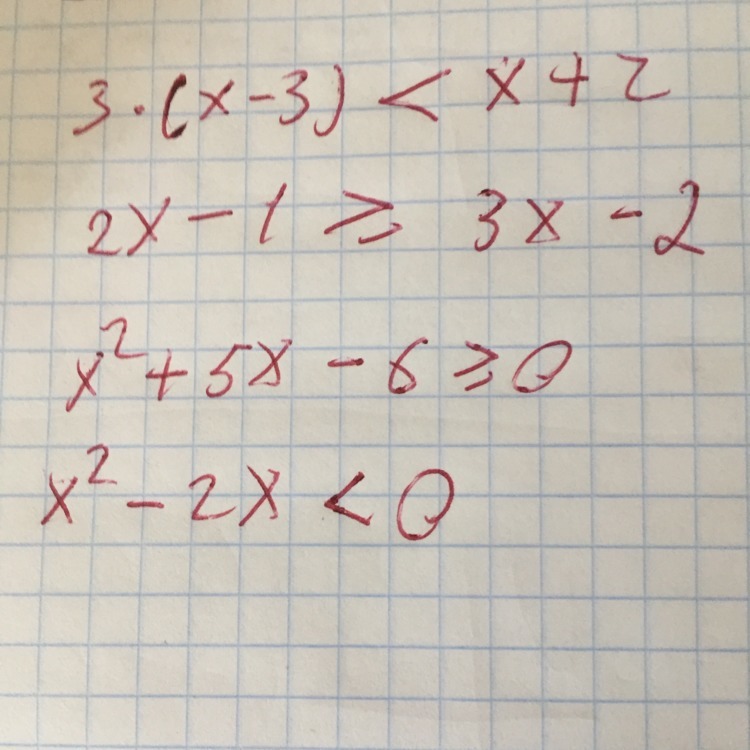 3·(x-3) < x+2
2x-1 ≥ 3x-2
x²+5x-6 ≥ 0
x²-2x < 0